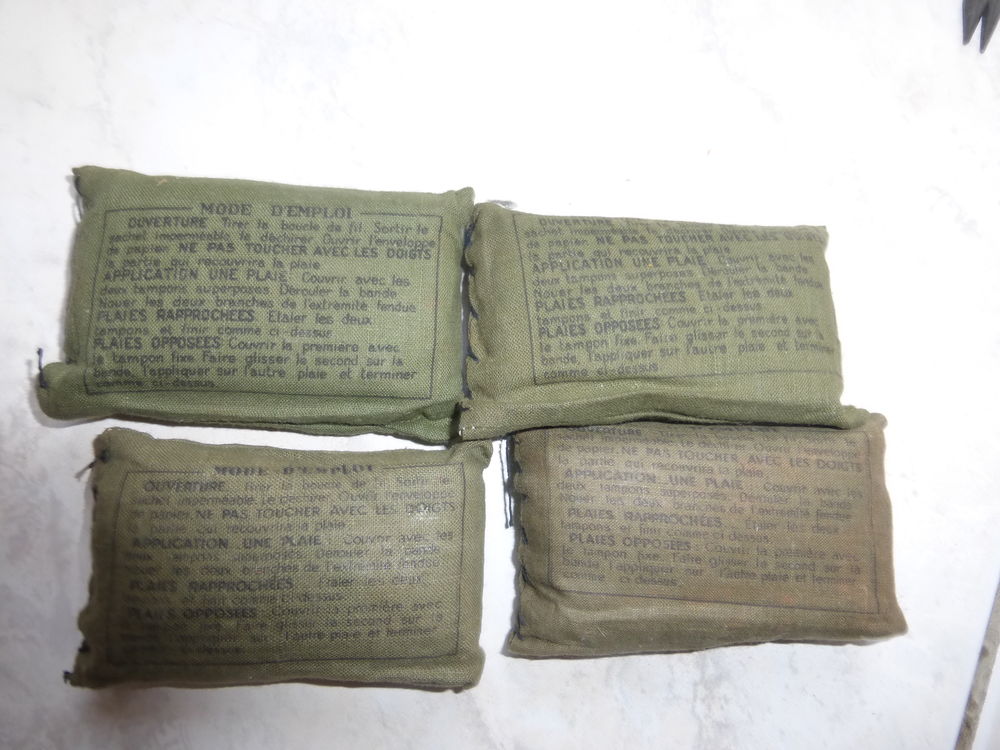 MODE D'EMPLOI
OUVERTURE Tirer la boucle de fil Sortir le
sachet imperméable le déchirer Ouvrir l'enveloppe
de papier NE PAS TOUCHER AVEC LES DOIGTS
la partie qui recouvrira la plaie
APPLICATION UNE PLAIE. Couvrir avec les
deux tampons superposes Derouler la bande
Nouer les deux branches de l'extremité fendue
PLAIES RAPPROCHÉES. Etaler les deux
tampons et finir comme ci-dessus
PLAIES OPPOSEES Couvrir la premiere avec
le tampon fixe Faire glisser le second sur la
bande, l'appliquer sur l'autre plaie et terminer
comme ci-dessus
OUVERTURE
sachet imperméable
de papier NE PAS TOUCHER AVEC LES DOIGTS
la partie qui recouvrira la plaie
APPLICATION UNE PLAIE. Couvrir avec les
deux tampons superposes Dérouler la bande
Nouer les deux branches de l'extremité fendue
PLAIES RAPPROCHÉES. Etaler les deux
tampons et finir comme ci-dessus
PLAIES OPPOSEES Couvrir la première avec
le tampon fixe Faire glisser le second sur la
bande, l'appliquer sur l'autre plaie et terminer
comme ci-dessus
MODE D'EMPLOI
OUVERTURE Tirer la boucle de fil Sortir le
sachet imperméable le déchirer Ouvrir l'enveloppe
de papier NE PAS TOUCHER AVEC LES DOIGTS
la partie qui recouvrira la plaie
APPLICATION UNE PLAIE : Couvrir avec les
deux tampons superposés. Dérouler la bande
Nouer les deux branches de l'extremité fendue
PLAIES RAPPROCHÉES Etaler les deux
ci-dessus
PLAIES OPPOSÉES Couvrir la première avec
Faire glisser le second sur la
l'appliquer sur l'autre plaie et terminer
ci-dessus
OUVERTURE
sachet imperméable Ouvrir l'enveloppe
de papier. NE PAS TOUCHER AVEC LES DOIGTS
la partie qui recouvrira la plaie
APPLICATION UNE PLAIE Couvrir avec les
deux tampons superposés. Dérouler la bande
Nouer les deux branches de l'extremité fendue
PLAIES RAPPROCHÉES Etaler les deux
tampons et finir comme ci-dessus
PLAIES OPPOSÉES : Couvrir la première avec
le tampon fixe Faire glisser le second sur la
bande l'appliquer sur l'autre plaie et terminer
comme ci-dessus.